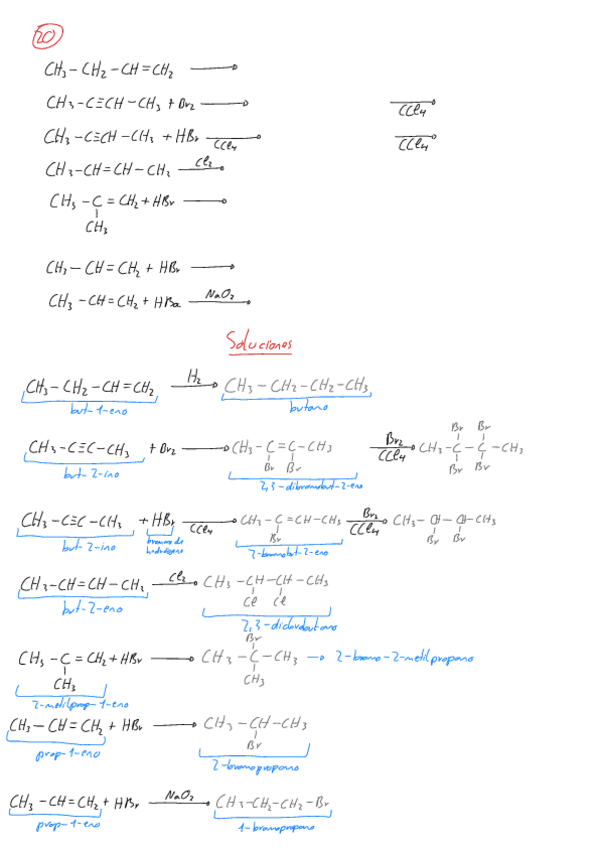 20
CH3-CH2-CH=CH2 ⟶
CH3-C≡CH-CH3 + Br2 ⟶ ⟶ CCl4
CH3-C≡CH-CH3 + HBr ⟶ CCl4 ⟶ CCl4
CH3-CH=CH-CH3 ⟶ Cl2
CH3-C=CH2+HBr ⟶
CH3
CH3-CH=CH2 + HBr ⟶
CH3-CH=CH2 + HBr ⟶ NaO2
Soluciones
CH3-CH2-CH=CH2 ⟶ H2 CH3-CH2-CH2-CH3
but-1-eno butano
Br Br
CH3-C≡C-CH3 + Br2 ⟶ CH3-C=C-CH3 ⟶ Br2 CCl4 CH3-C-C-CH3
Br Br Br Br
but-2-ino 2,3-dibromobut-2-eno
CH3-C≡C-CH3 + HBr ⟶ CCl4 CH3-C=CH-CH3 ⟶ Br2 CCl4 CH3-CH-CH-CH3
Br Br Br
but-2-ino bromuro de hidrógeno 2-bromobut-2-eno
CH3-CH=CH-CH3 ⟶ Cl2 CH3-CH-CH-CH3
Cl Cl
but-2-eno 2,3-diclorobutano
Br
CH3-C=CH2+HBr ⟶ CH3-C-CH3 → 2-bromo-2-metilpropano
CH3 CH3
2-metilprop-1-eno
CH3-CH=CH2 + HBr ⟶ CH3-CH-CH3
Br
prop-1-eno 2-bromopropano
CH3-CH=CH2 + HBr ⟶ NaO2 CH3-CH2-CH2-Br
prop-1-eno 1-bromopropano